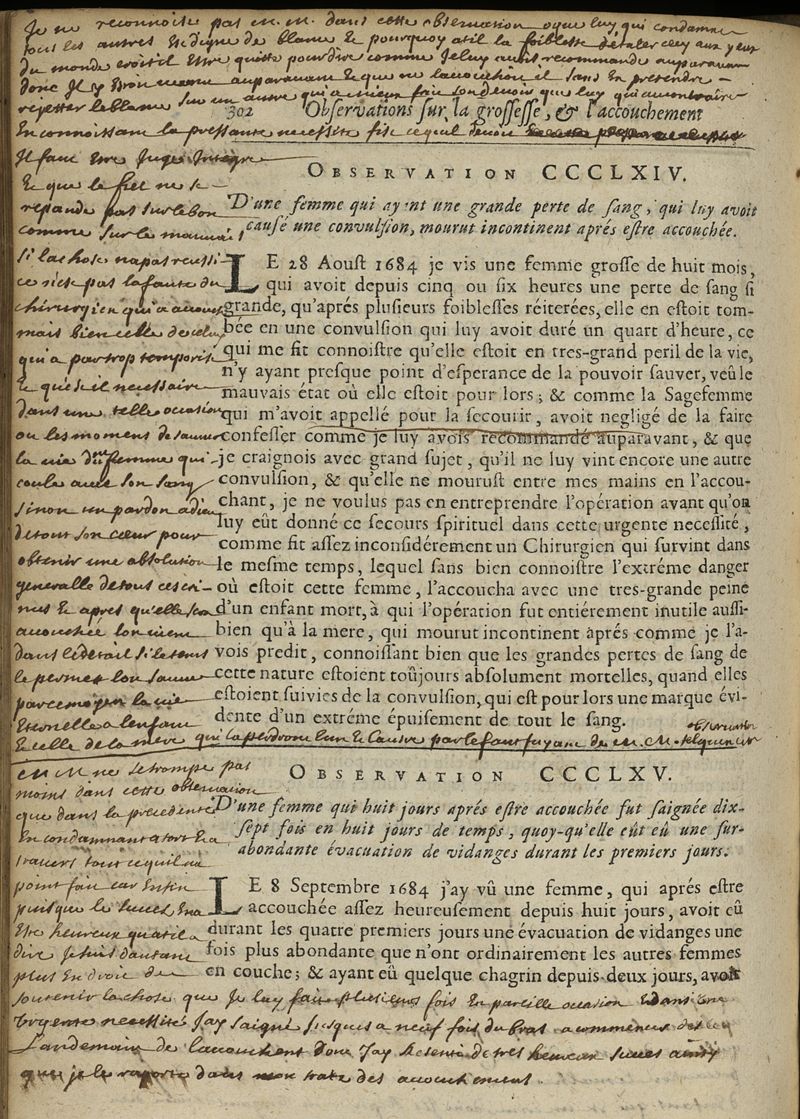 Je ne reconnoise pas m. m. dans cette observation que luy qui condamne
tous les autres Est digne de blame Et pourquoy atil la foiblesse aux yeux
du monde Estre quitte pour dire comme Je luy avois recommandé auparavan
donc Il y auparavan Et que ne sans En pretendre
rejetter le blame sur un autre qui a mieux fait que luy qui au contraire
302 Observations sur la grossesse, & l'accouchement
En connoissan la pressante necessité fise ce quil devoit
Il faut Estre Juge Integre
OBSERVATION CCCLXIV.
Et que le fiel ne se
repande pas sur le bon
comme sur le mauvais
D'une femme qui ayant une grande perte de sang, qui luy avoit
causé une convulsion, mourut incontinent aprés estre accouchée.
si la chose na pas reussi
ce n'est pas la faute du
chirurgien qui a
mais bien celle de celuy
qui a par trop temporisé
Et que il necessaire
dans une telle occasion
ou les moment de sauver
la vie dune femme qui
coule avec son sang
sinon un pardon a dieu
de tout son cœur pour
obtenir une absolution
generalle de tous ces cri-
mes Et apres qu'elle sera
accouchée lon vient
dans le detail si le tems
le permet lon sauve
par ce moyen la vie
Eternelle a lenfan
Et celle de la mere qui la perdront lun Et lautre par le de m. m.
LE 28 Aoust 1684 je vis une femme grosse de huit mois,
qui avoit depuis cinq ou six heures une perte de sang si
grande, qu'aprés plusieurs foiblesses réiterées, elle en estoit tom-
bée en une convulsion qui luy avoit duré un quart d'heure, ce
qui me fit connoistre qu'elle estoit en tres-grand peril de la vie,
n'y ayant presque point d'esperance de la pouvoir sauver, veû le
mauvais état où elle estoit pour lors; & comme la Sagefemme
qui m'avoit appellé pour la secourir, avoit negligé de la faire
confesser comme je luy avois recommandé auparavant, & que
je craignois avec grand sujet, qu'il ne luy vint encore une autre
convulsion, & qu'elle ne mourust entre mes mains en l'accou-
chant, je ne voulus pas en entreprendre l'opération avant qu'on
luy eût donné ce secours spirituel dans cette urgente necessité,
comme fit assez inconsidérement un Chirurgien qui survint dans
le mesme temps, lequel sans bien connoistre l'extréme danger
où estoit cette femme, l'accoucha avec une tres-grande peine
d'un enfant mort, à qui l'opération fut entiérement inutile aussi-
bien qu'à la mere, qui mourut incontinent aprés comme je l'a-
vois predit, connoissant bien que les grandes pertes de sang de
cette nature estoient toûjours absolument mortelles, quand elles
estoient suivies de la convulsion, qui est pour lors une marque évi-
dente d'un extréme épuisement de tout le sang.
m. M ne se trompe pas
moins dans cette observation
que dans la precedente
En condamnant a tort Et a
travers tout ce quil na
OBSERVATION CCCLXV.
D'une femme qui huit jours aprés estre accouchée fut saignée dix-
sept fois en huit jours de temps, quoy-qu'elle eût eû une sur-
abondante évacuation de vidanges durant les premiers jours.
point fait car Enfin
puisque le succes En a
Este heureux qua til a
dire Je suis dautant
plus En droit de
LE 8 Septembre 1684 j'ay vû une femme, qui aprés estre
accouchée assez heureusement depuis huit jours, avoit eû
durant les quatre premiers jours une évacuation de vidanges une
fois plus abondante que n'ont ordinairement les autres femmes
en couche; & ayant eû quelque chagrin depuis deux jours, avoit
soutenir la chose que Je luy fait plusieurs fois En pareille occasion Et dans une
Urgente necessité Jay saigné jusques a neuf fois du bras a commencer des
landemain de lacouchement dont Jay de tres heureux succes ainsy
que je le raporte dans mon traté des accouchement.